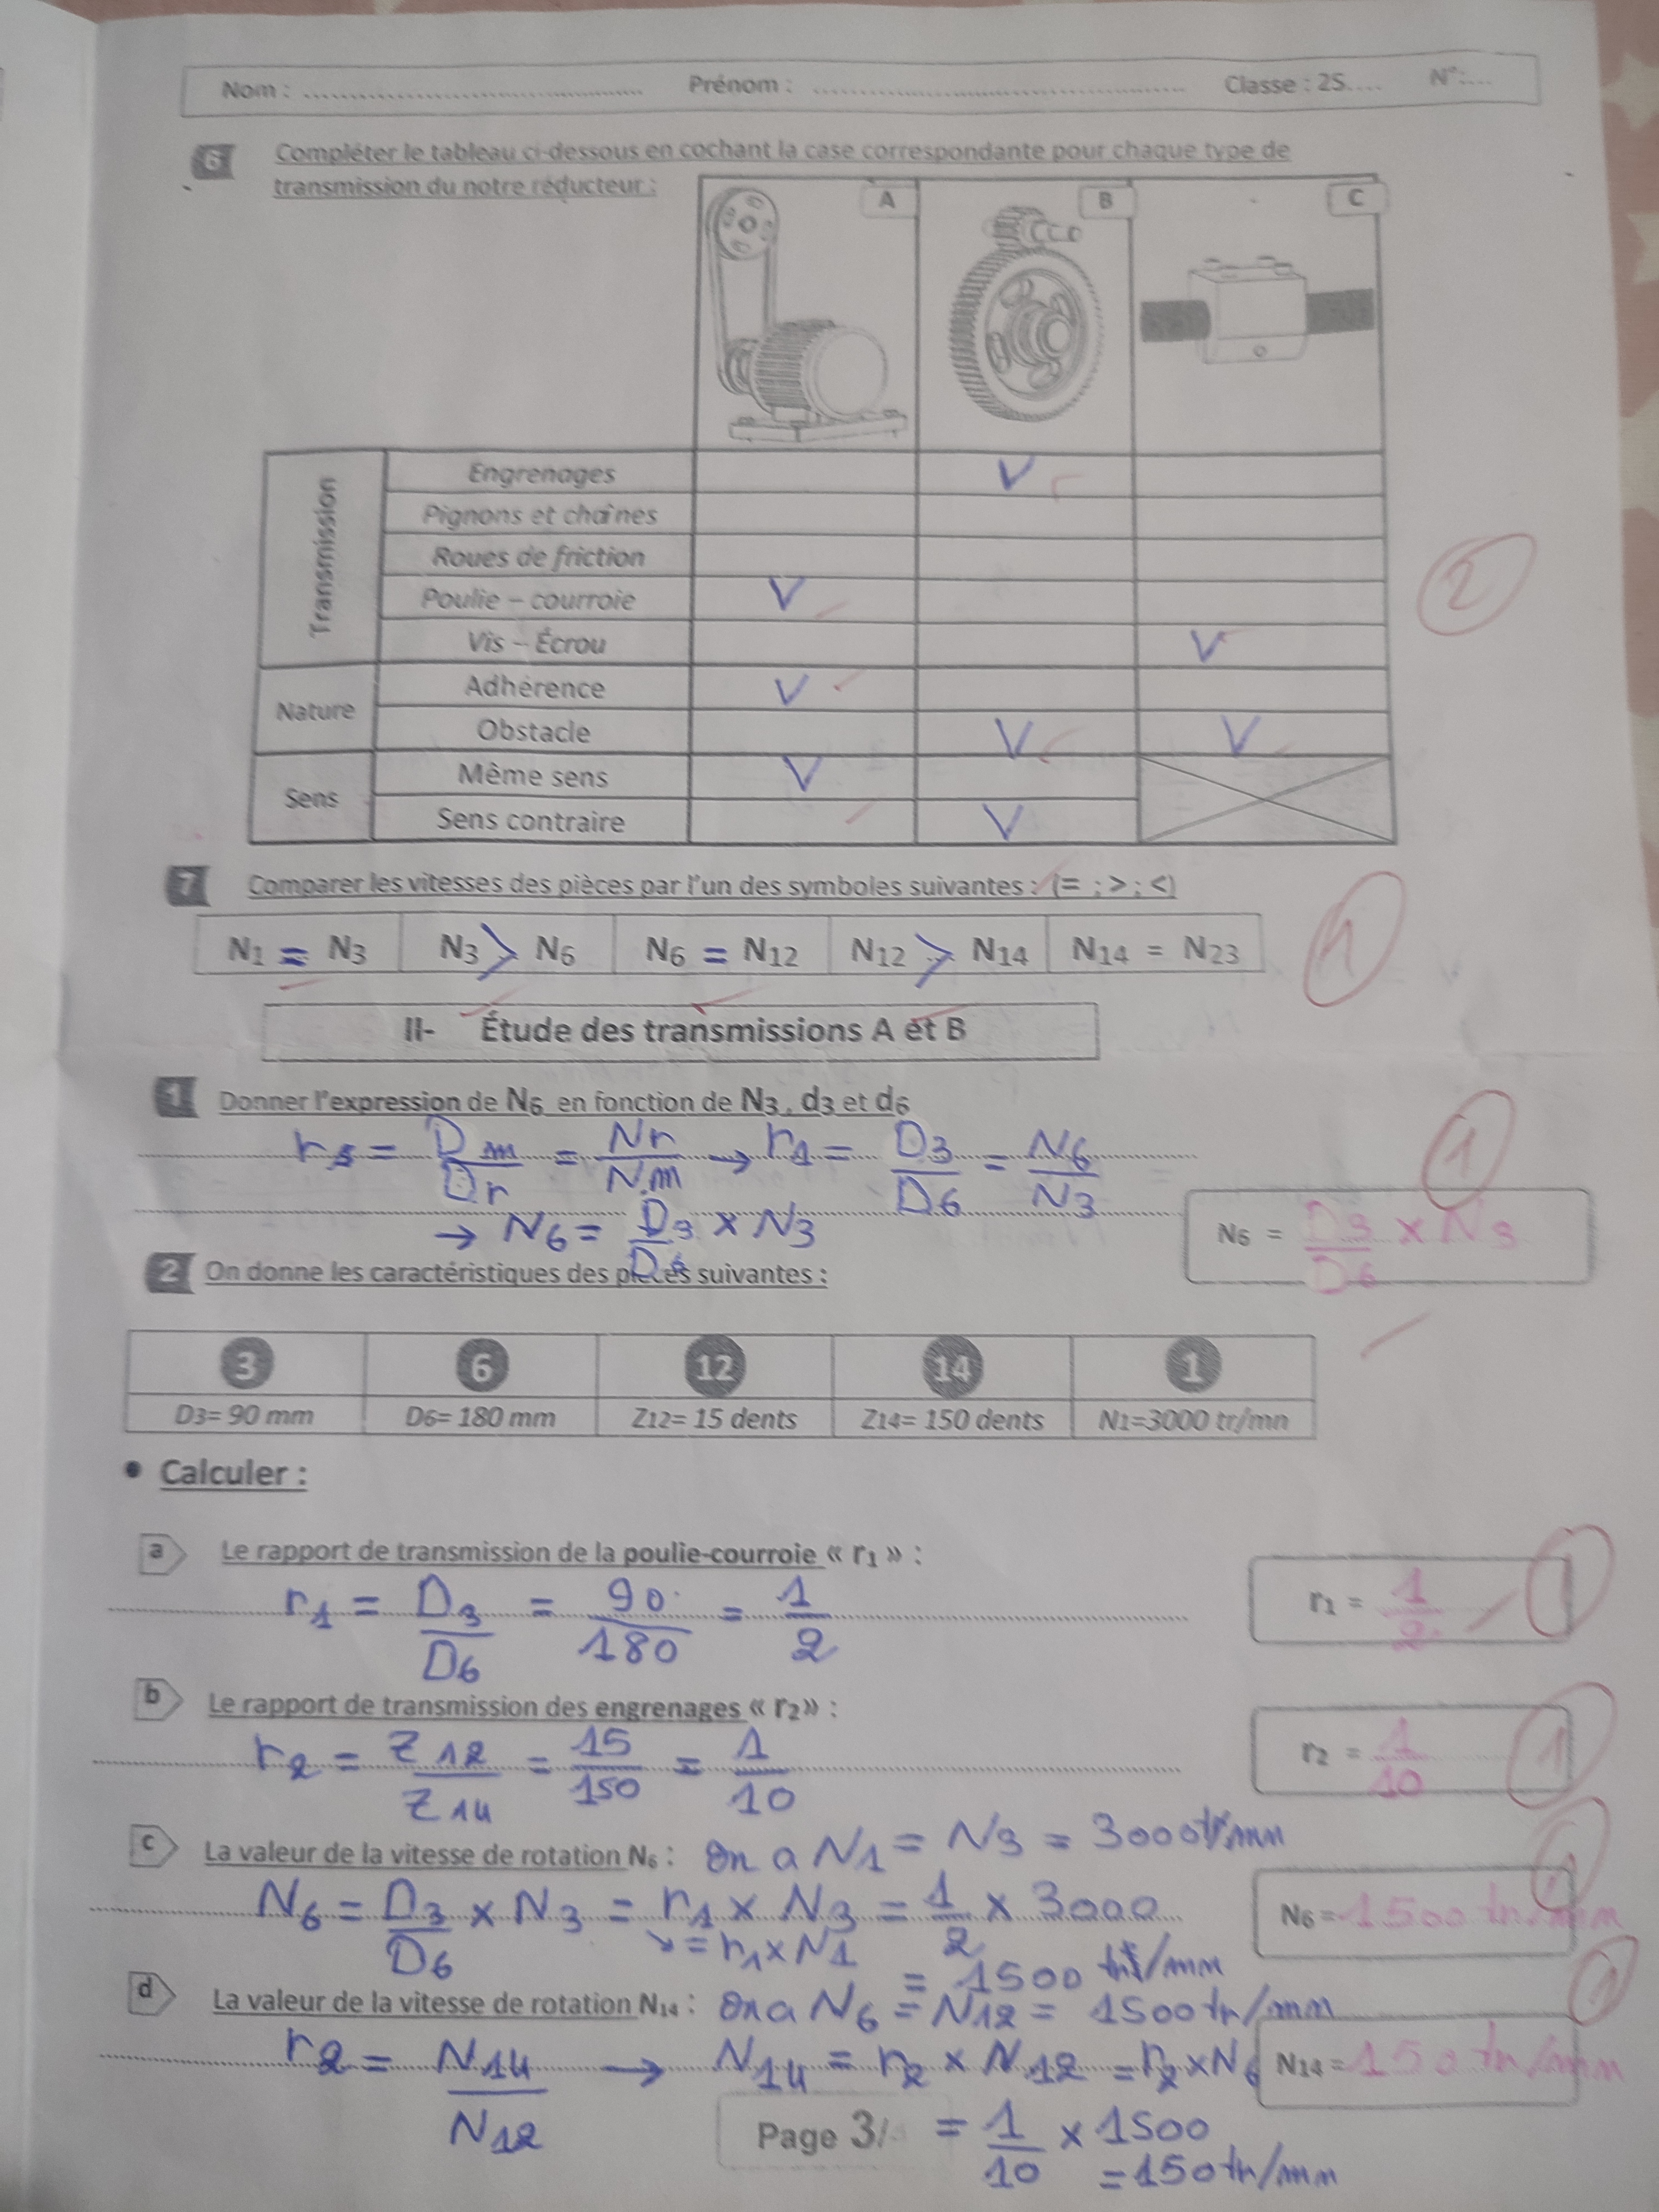 Nom : ................ Prénom : ................ Classe : 2S.... N°:....
6 Compléter le tableau ci-dessous en cochant la case correspondante pour chaque type de
transmission du notre réducteur :
A B C
Transmission
Engrenages V
Pignons et chaînes
Roues de friction
Poulie – courroie V
Vis – Écrou V
2
Nature
Adhérence V
Obstacle V V
Sens
Même sens V
Sens contraire V
7 Comparer les vitesses des pièces par l'un des symboles suivantes : (= ; > ; <)
N1 = N3 N3 > N6 N6 = N12 N12 > N14 N14 = N23
1
II- Étude des transmissions A et B
1 Donner l'expression de N6 en fonction de N3, d3 et d6
= Dm/Dr = Nr/Nm → r1 = D3/D6 = N6/N3
1
→ N6 = D3/D6 × N3
N6 = D3/D6 × N3
2 On donne les caractéristiques des pièces suivantes :
3 6 12 14 1
D3= 90 mm D6= 180 mm Z12= 15 dents Z14= 150 dents N1=3000 tr/mn
• Calculer :
a Le rapport de transmission de la poulie-courroie « r1 » :
r1 = D3/D6 = 90/180 = 1/2
r1 = 1/2 1
b Le rapport de transmission des engrenages « r2» :
r2 = Z12/Z14 = 15/150 = 1/10
r2 = 1/10 1
c La valeur de la vitesse de rotation N6 : On a N1 = N3 = 3000tr/mn
N6 = D3/D6 × N3 = r1 × N3 = 1/2 × 3000
= r1 × N1
N6 = 1500 tr/mn 1
= 1500 tr/mn
d La valeur de la vitesse de rotation N14 : On a N6 = N12 = 1500tr/mn
1
r2 = N14/N12 → N14 = r2 × N12 = r2 × N6
N14 = 150 tr/mn
Page 3/
= 1/10 × 1500
= 150tr/mn